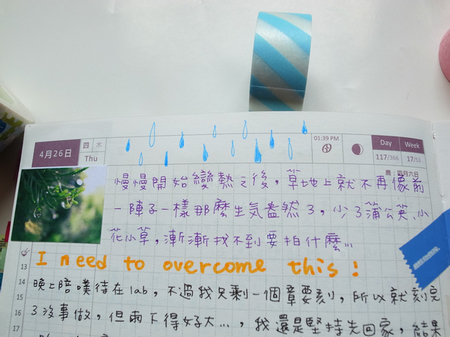 4月26日
日 木
Thu
01:39 PM
Day Week
117/366 17/53
慢慢開始變熱之後，草地上就不再像前
一陣子一樣那麼生氣盎然了，少了蒲公英、小
花小草，漸漸找不到要拍什麼…
I need to overcome this!
晚上陪噗待在lab，不過我只剩一個章要刻，所以就刻完
了沒事做，但雨下得好大…，我還是堅持先回家，結果
13
14
15
16
17